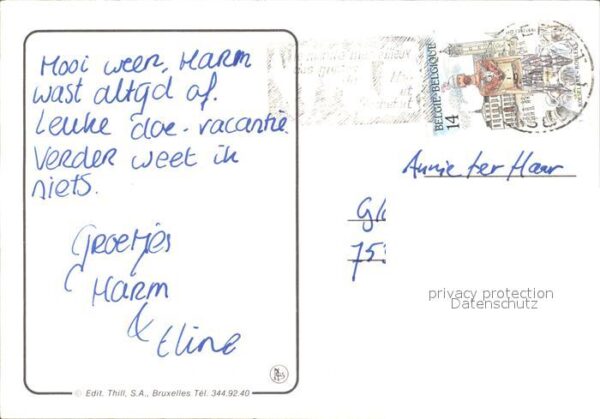 Mooi weer, Harm
wast altijd af.
Leuke doe-vacantie
Verder weet ik
niets.
Groetjes
Harm
&
Eline
BELGIE-BELGIQUE
14
Annie ter Haar
Gl
75
privacy protection
Datenschutz
© Edit. Thill, S.A., Bruxelles Tél. 344.92.40